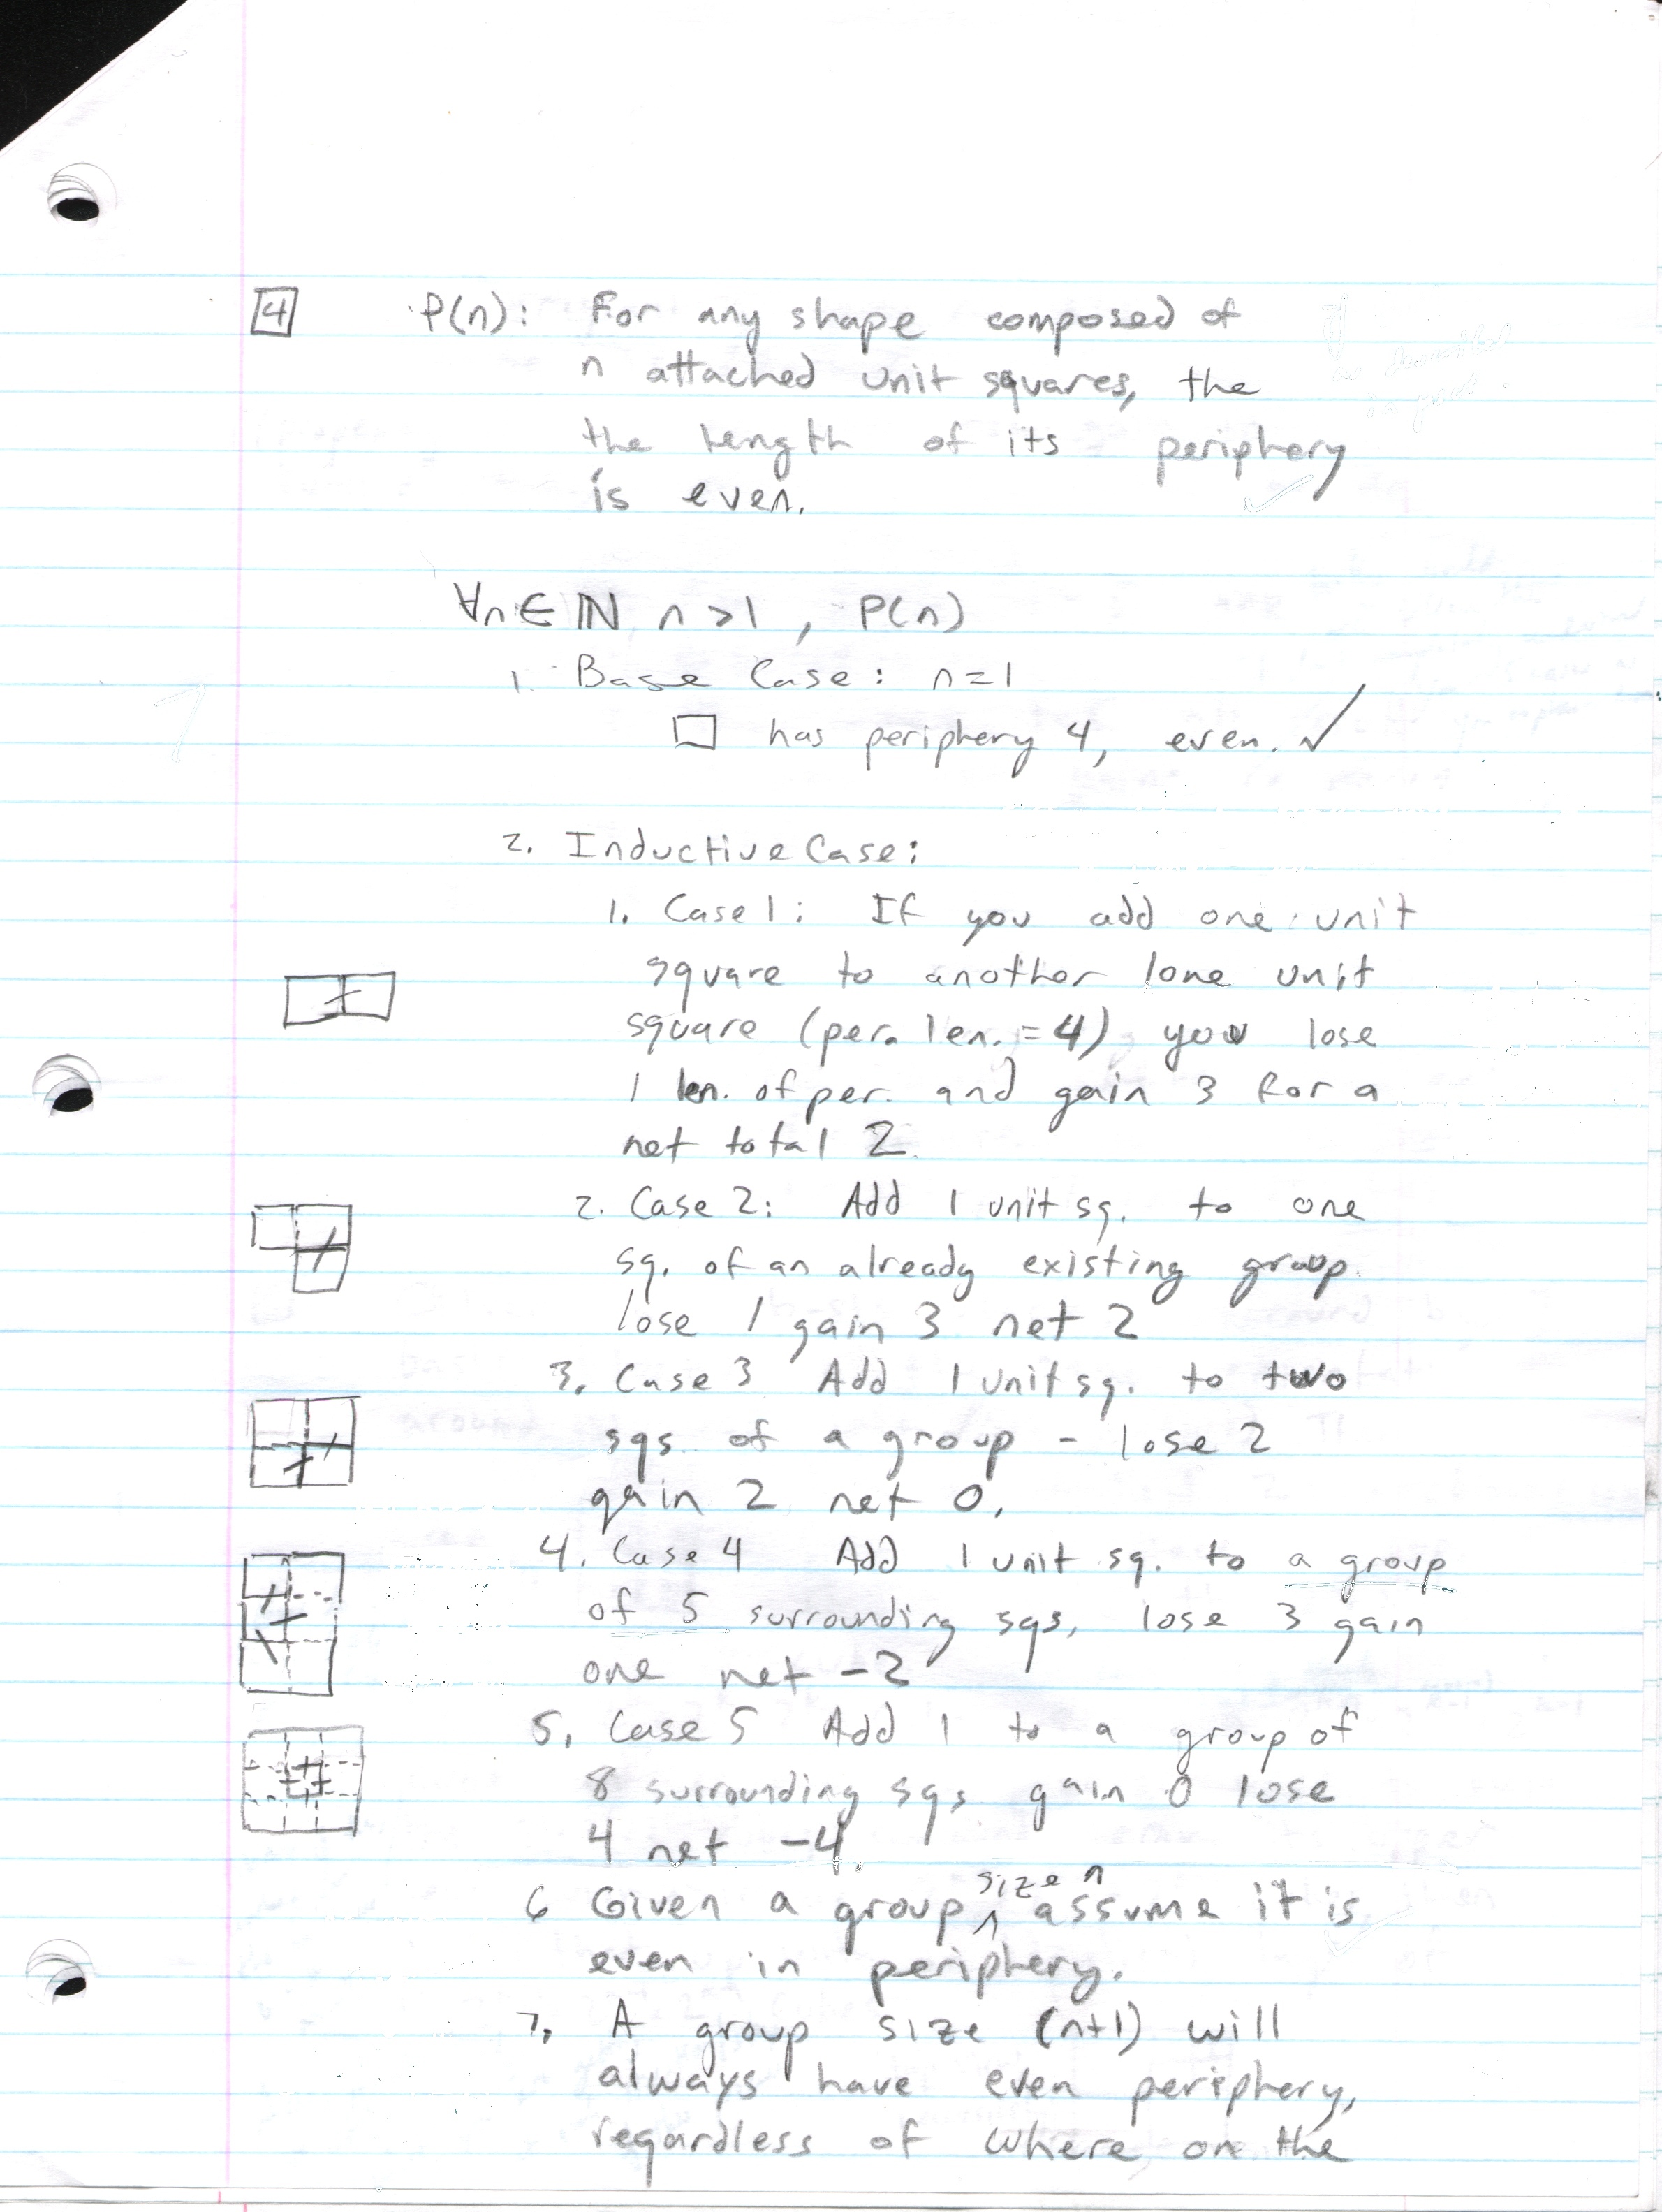 4 P(n): For any shape composed of
n attached unit squares, the
the length of its periphery
is even.
∀n∈ℕ n>1, P(n)
1. Base Case: n=1
□ has periphery 4, even. ✓
2. Inductive Case:
1. Case 1: If you add one unit
square to another lone unit
square (per. len. = 4) you lose
1 len. of per. and gain 3 for a
net total 2.
2. Case 2: Add 1 unit sq. to one
sq. of an already existing group.
lose 1 gain 3 net 2
3. Case 3 Add 1 unit sq. to two
sqs. of a group - lose 2
gain 2 net 0.
4. Case 4 Add 1 unit sq. to a group
of 5 surrounding sqs, lose 3 gain
one net -2
5. Case 5 Add 1 to a group of
8 surrounding sqs gain 0 lose
4 net -4.
6 Given a group size n assume it is
even in periphery.
7. A group size (n+1) will
always have even periphery,
regardless of where on the